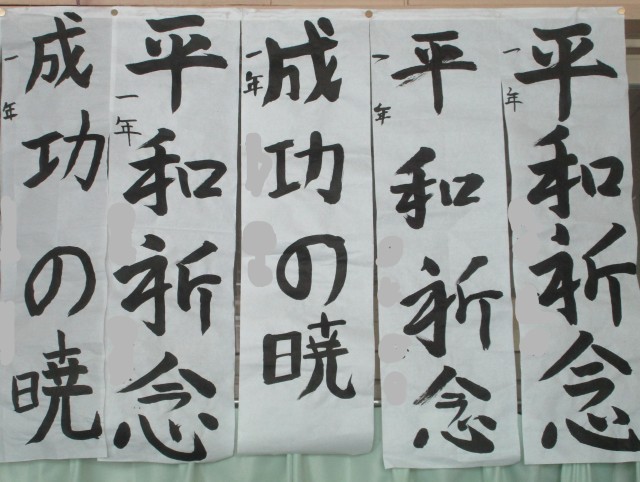 平和祈念
一年
平和祈念
一年
成功の暁
一年
平和祈念
一年
成功の暁
一年